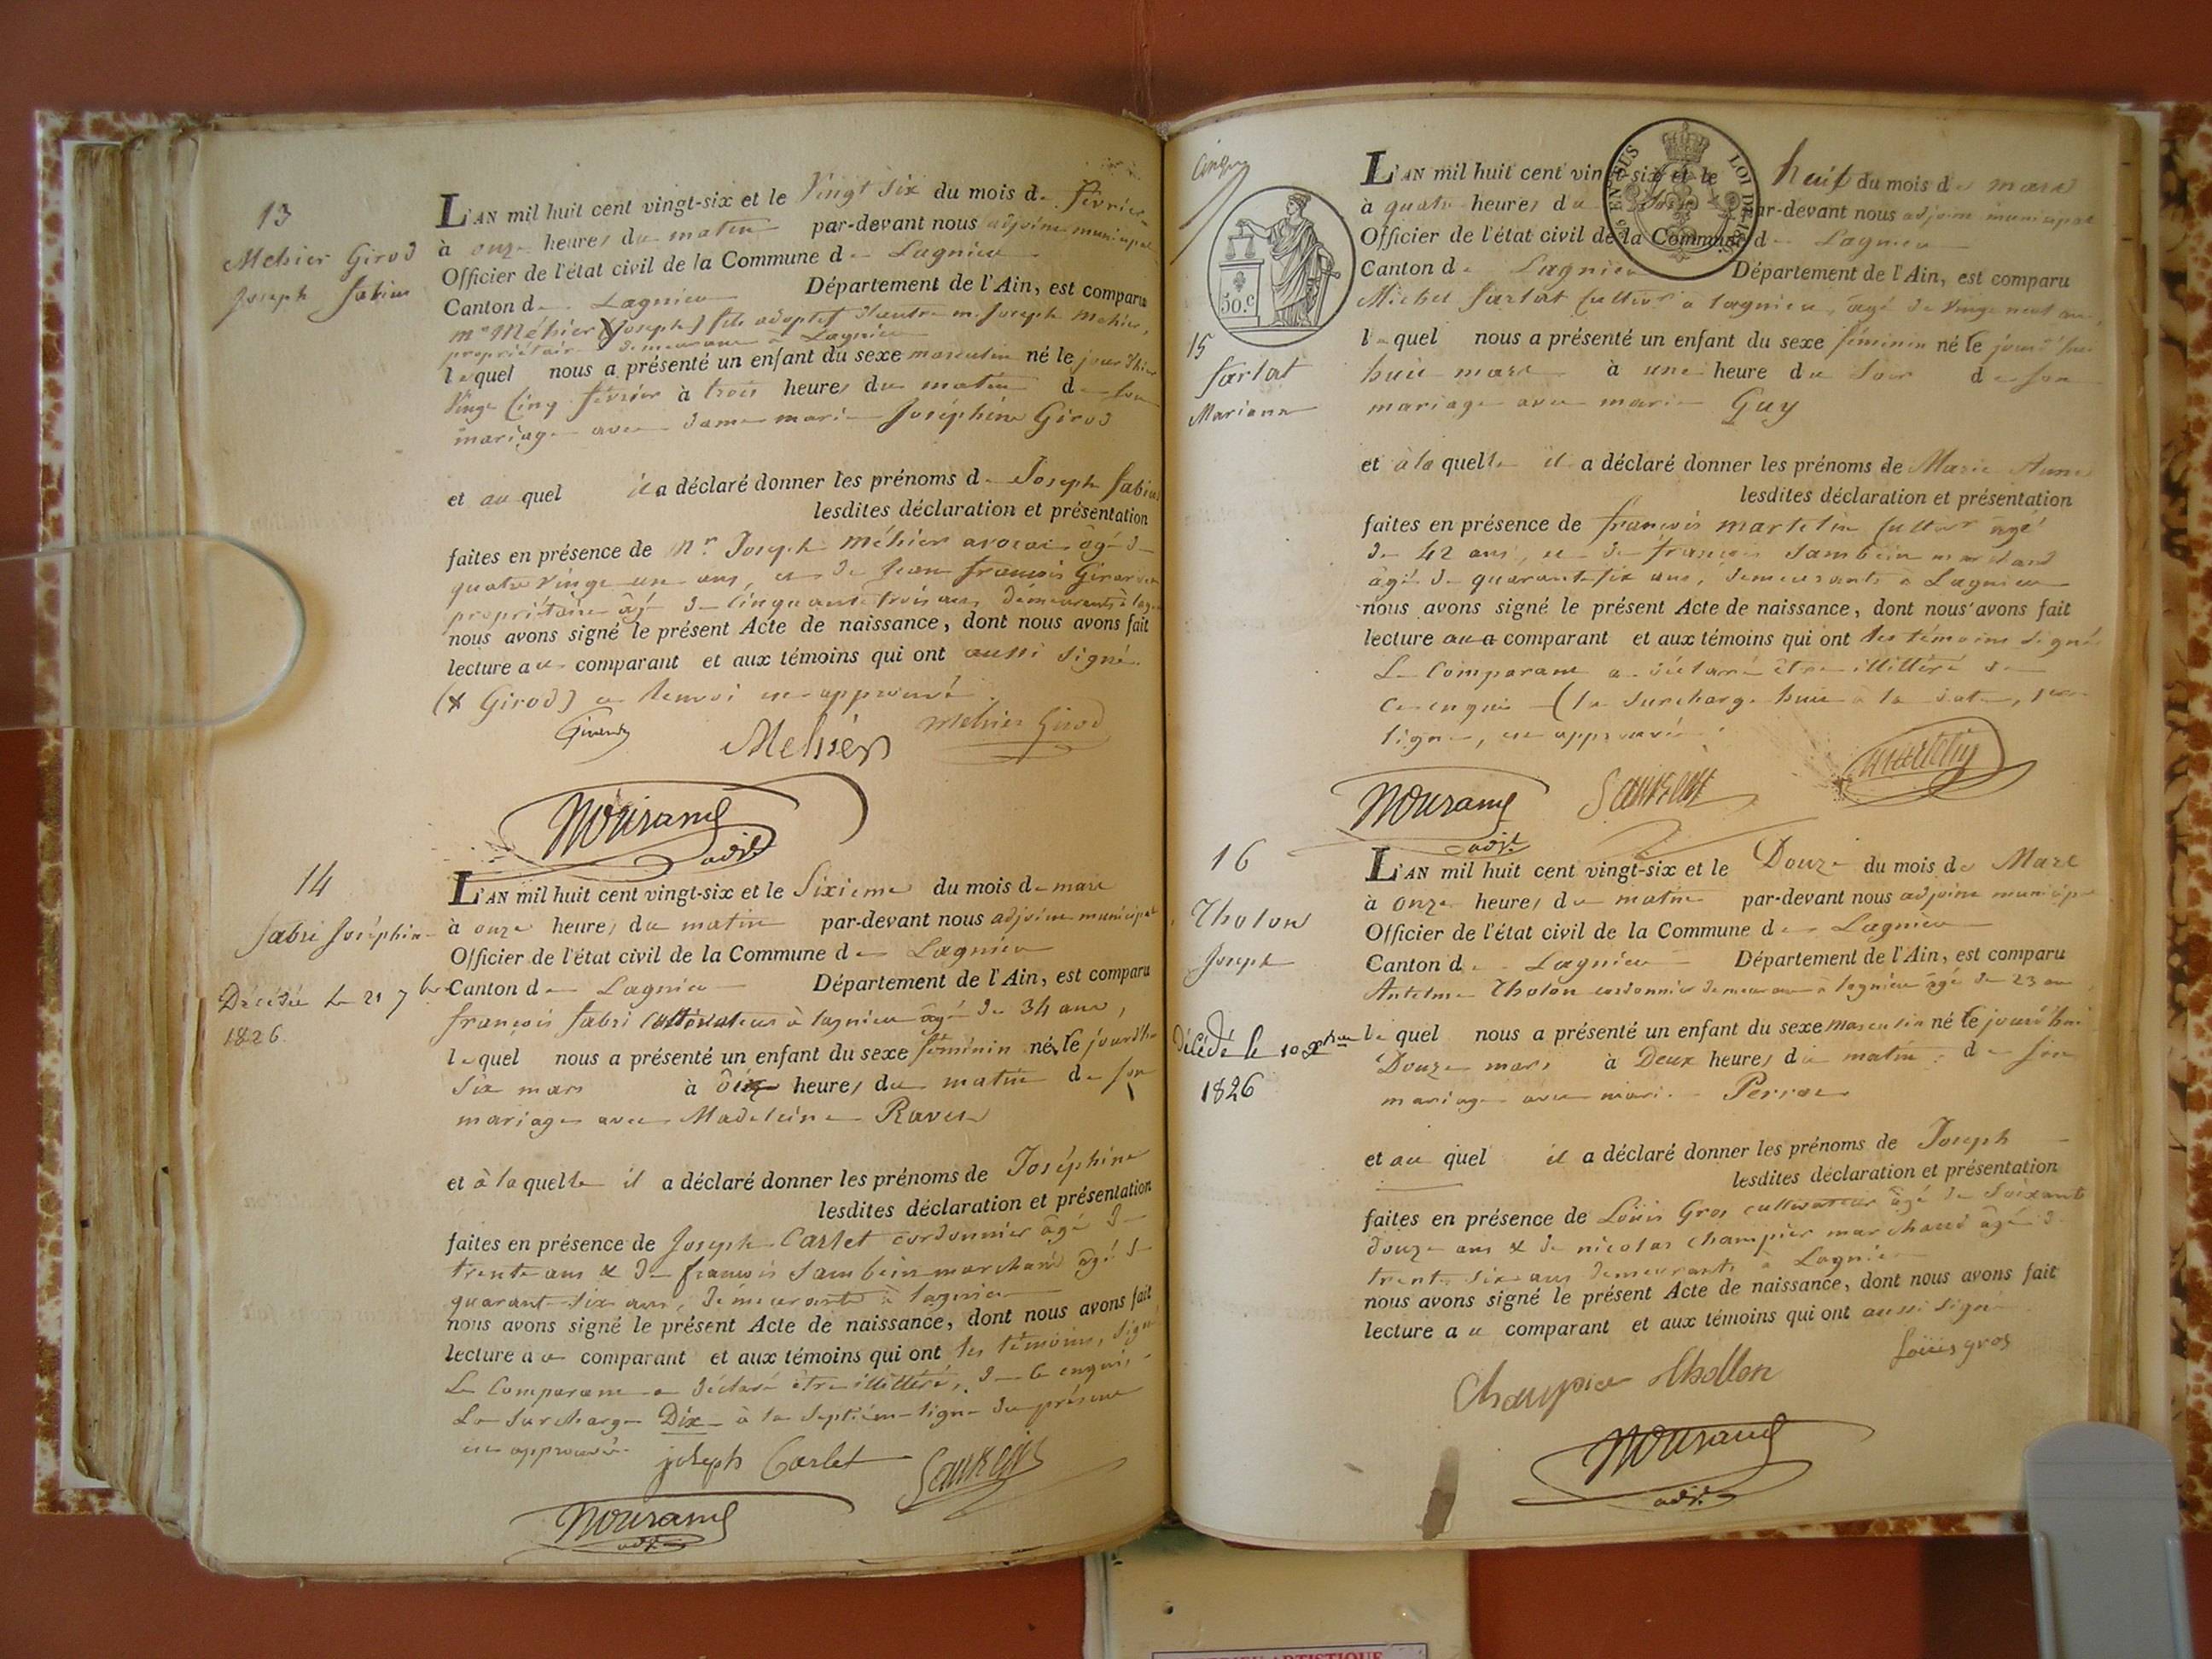 13
Mehier Girod
Joseph Fabius
L'AN mil huit cent vingt-six et le Vingt six du mois de février
à onze heures du matin par-devant nous adjoint municipal
Officier de l'état civil de la Commune de Lagnieu
Canton de Lagnieu Département de l'Ain, est comparu
mr Méhier (Joseph) fils adoptif d'autre m. Joseph Mehier,
propriétaire demeurant à Lagnieu
lequel nous a présenté un enfant du sexe masculin né le jour d'hier
Vingt Cinq février à trois heures du matin de son
mariage avec dame marie Joséphine Girod
et au quel il a déclaré donner les prénoms de Joseph Fabius
lesdites déclaration et présentation
faites en présence de Mr Joseph Méhier avocat âgé de
quatre Vingt un ans, et de Jean François
propriétaire âgé de Cinquante trois ans demeurants à
nous avons signé le présent Acte de naissance, dont nous avons fait
lecture au comparant et aux témoins qui ont aussi signé.
(x Girod) ce Renvoi est approuvé.
Mehier
Mehier Girod
adjt
14
Fabri Joséphine
Décédée le 21 7bre
1826.
L'AN mil huit cent vingt-six et le Sixieme du mois de mars
à onze heures du matin par-devant nous adjoint municipal
Officier de l'état civil de la Commune de Lagnieu
Canton de Lagnieu Département de l'Ain, est comparu
françois fabri Cultivateur à lagnieu âgé de 34 ans,
lequel nous a présenté un enfant du sexe féminin né le jourd'hui
Six mars à Dix heures du matin de son
mariage avec Madeleine
et à la quelle il a déclaré donner les prénoms de Joséphine
lesdites déclaration et présentation
faites en présence de Joseph Carlet cordonnier âgé de
trente ans & de françois Sambein marchand âgé de
quarante Six ans, demeurants à lagnieu
nous avons signé le présent Acte de naissance, dont nous avons fait
lecture au comparant et aux témoins qui ont les témoins, signé
Le Comparant a déclaré être illitéré, de ce enquis,
La Surcharge Dix à la Septième ligne du présent
est approuvée.
joseph Carlet
adjt
cinq
50.c
LOI DE
15
Sarlat
Marianne
L'AN mil huit cent vingt-six et le huit du mois de mars
à quatre heures du Soir par-devant nous adjoint municipal
Officier de l'état civil de la Commune de Lagnieu
Canton de Lagnieu Département de l'Ain, est comparu
Michel Sarlat Cultivr à lagnieu, âgé de Vingt neuf ans,
lequel nous a présenté un enfant du sexe féminin né le jourd'hui
huit mars à une heure du Soir de son
mariage avec marie Guy
et à la quelle il a déclaré donner les prénoms de Marie Anne
lesdites déclaration et présentation
faites en présence de françois martelin Cultivr âgé
de 42 ans, et de françois Sambein marchand
âgé de quarante six ans, demeurants à Lagnieu
nous avons signé le présent Acte de naissance, dont nous avons fait
lecture au comparant et aux témoins qui ont les témoins signé
Le Comparant a déclaré être illitéré de
ce enquis (la Surcharge huit à la date, 1ere
ligne, est approuvée.
martelin
adjt
16
Tholon
Joseph
Décédé le 10 Xbre
1826
L'AN mil huit cent vingt-six et le Douze du mois de Mars
à onze heures du matin par-devant nous adjoint municipal
Officier de l'état civil de la Commune de Lagnieu
Canton de Lagnieu Département de l'Ain, est comparu
Antelme Tholon cordonnier demeurant à lagnieu âgé de 23 ans
lequel nous a présenté un enfant du sexe masculin né le jourd'hui
Douze mars à Deux heures du matin de son
mariage avec marie
et au quel il a déclaré donner les prénoms de Joseph
lesdites déclaration et présentation
faites en présence de Loüis Gros cultivateur âgé de Soixante
douze ans & de nicolas Champier marchand âgé de
trente Six ans demeurants à Lagnieu
nous avons signé le présent Acte de naissance, dont nous avons fait
lecture au comparant et aux témoins qui ont aussi signé
Loüis gros
Champier thollon
adjt